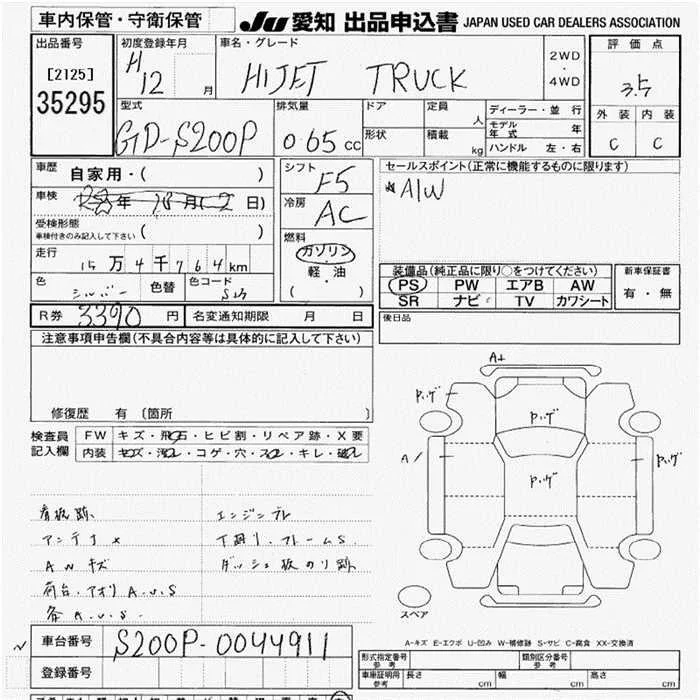 車内保管・守衛保管
JU 愛知 出品申込書 JAPAN USED CAR DEALERS ASSOCIATION
出品番号
[2125]
35295
初度登録年月
H 12 月
車名・グレード
HIJET TRUCK
2WD
・
4WD
評価点
3.5
外装 内装
C C
型式
GD-S200P
排気量
0.65 CC
ドア
形状
定員
人
積載
kg
ディーラー・並行
モデル年式 年
ハンドル 左・右
車歴 自家用・( )
車検 年 月 日)
受検形態
車検付きのみ記入して下さい ( )
走行
15万4千764km
色
シルバー
色替
色コード
シフト
F5
冷房
AC
燃料
ガソリン
・
軽油
( )
セールスポイント(正常に機能するものに限ります)
A/W
装備品(純正品に限り○をつけてください)
PS PW エアB AW
SR ナビ TV カワシート
新車保証書
有・無
後日品
R券 3390 円
名変通知期限 月 日
注意事項申告欄(不具合内容等は具体的に記入して下さい)
修復歴 有 〔箇所 〕
検査員記入欄
FW キズ・飛石・ヒビ割・リペア跡・X要
内装 キズ・汚れ・コゲ・穴・スレ・キレ・破れ
看板跡
アンテナ×
AWキズ
荷台.アオリA.U.S
各A.U.S.
エンジンプレ
下廻り.フレームS.
ダッシュ板のり跡
A+
P.ハゲ
P.ハゲ
P.ハゲ
A
P.ハゲ
スペア
A-キズ E-エクボ U-凹み W-補修跡 S-サビ C-腐食 XX-交換済
車台番号 S200P-0044911
登録番号
形式指定番号
参考
類別区分番号
参考
車庫証明用
参考
長さ cm
幅 cm
高さ cm